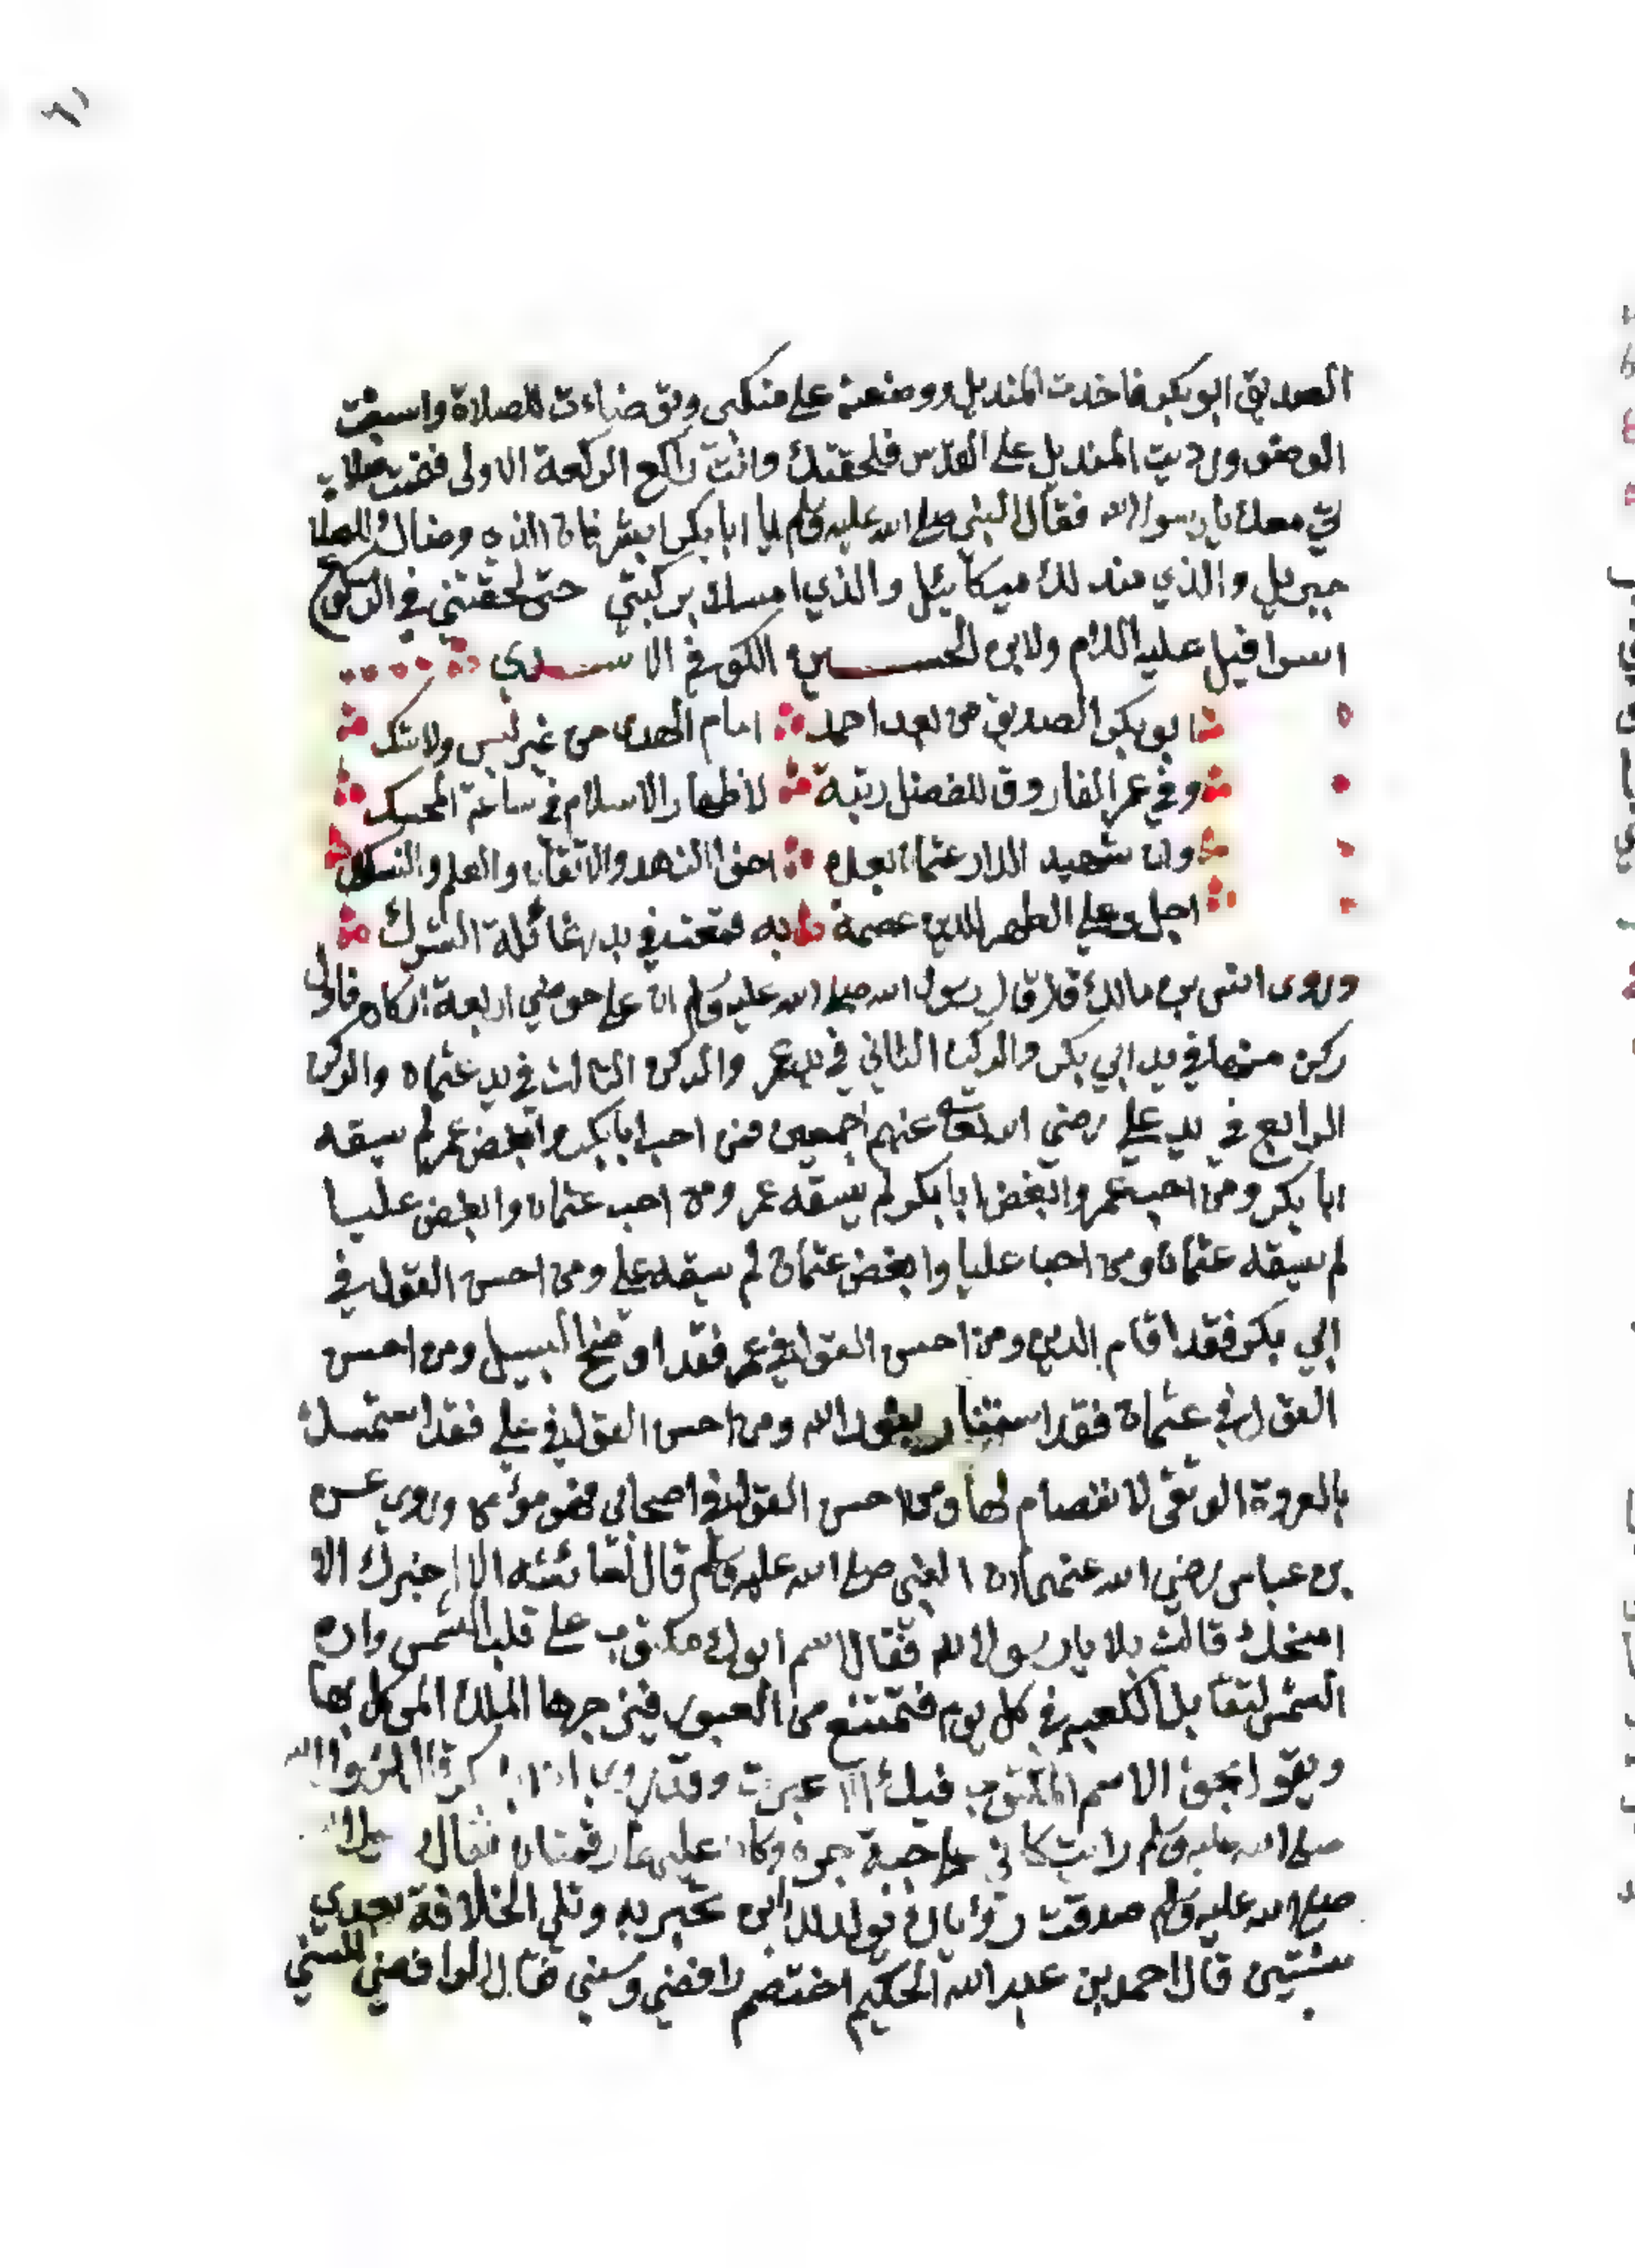 الصديق ابو بكر فاخدت المنديل ووضعته على منكبي وتوضاءت للصلاة واسبغت
الوضوء ورديت المنديل على القدس فلحقتك وانت راكع الركعة الاولى فتمت صلا
تي معك يا رسول الله فقال النبي صلى الله عليه وسلم يا ابا بكر ابشر فان الذي وضاك للصلاة
جبريل والذي مندلك ميكائيل والذي امسك بركبتي حتى لحقتني في الركوع
اسرافيل عليه السلام ولابي الحسين الكوفي الاسدي
ابو بكر الصديق من بعد احمد امام الهدى من غير لبس ولا شك
وفي عمر الفاروق للفضل رتبة لاظهار الاسلام في ساعة المحسك
وان شهيد الدار عثمان العلم اخو الزهد والاتقان والعلم والنسك
اجل وعلي الطهر للدين عصمة به غائلة الشرك
وروى انس بن مالك قال قال رسول الله صلى الله عليه وسلم ان على حوضي اربعة اركان فاول
ركن منها في يد ابي بكر والركن الثاني في يد عمر والركن الثالث في يد عثمان والركن
الرابع في يد علي رضي الله تعالى عنهم اجمعين فمن احب ابا بكر وابغض عمر لم يسقه
ابا بكر ومن احب عمر وابغض ابا بكر لم يسقه عمر ومن احب عثمان وابغض عليا
لم يسقه عثمان ومن احب عليا وابغض عثمان لم يسقه علي ومن احسن القول في
ابي بكر فقد اقام الدين ومن احسن القول في عمر فقد اوضح السبيل ومن احسن
القول في عثمان فقد استنار بنور الله ومن احسن القول في علي فقد استمسك
بالعروة الوثقى لا انفصام لها ومن احسن القول في اصحابي فهو مؤمن وروي عن
بن عباس رضي الله عنهما ان النبي صلى الله عليه وسلم قال لعائشه الا اخبرك الا
امنحك قالت بلا يا رسول الله فقال اسم ابوك مكتوب على قلب الشمس وان
الشمس لتقابل الكعبه في كل يوم فتمتنع من العبور فيزجرها الملك الموكل بها
ويقول بحق الاسم المكتوب فيك الا عبرت وقد روي ان ابا بكر قال لرسول الله
صلى الله عليه وسلم رايت كاني علي جبة حمره وكان عليها رقمتان فقال
صلى الله عليه وسلم صدقت رؤياك تولد لك ابن تحبر به وتلي الخلافة بعدي
سنتين قال احمد بن عبد الله الحكيم اختصم رافضي وسني فقال الرافضي للسني